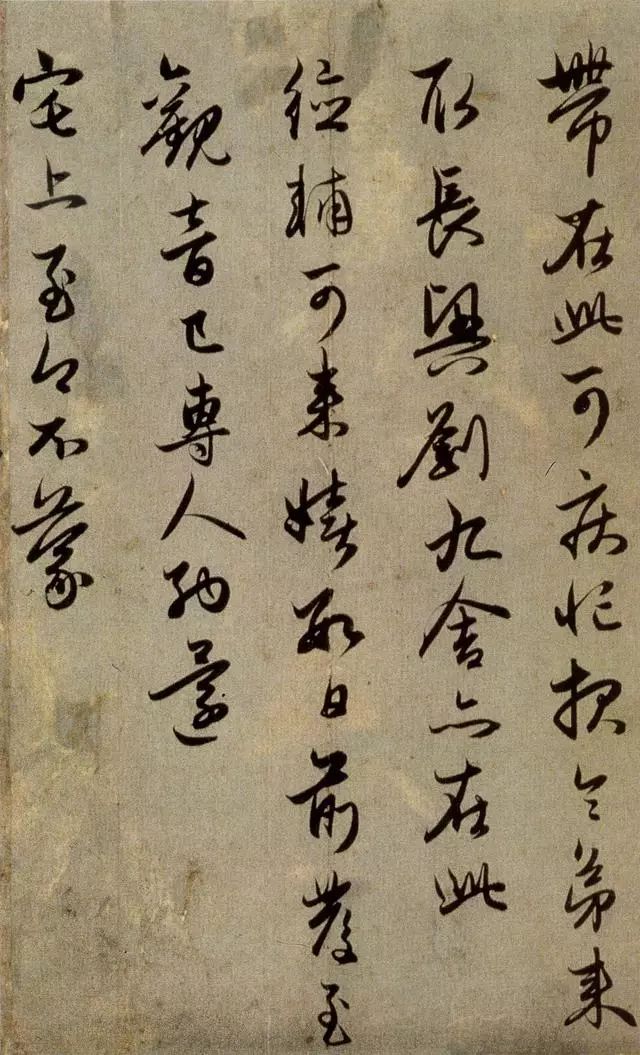 帶在此可疾忙報令弟來
取長興劉九舍亦在此
德輔可來嬉數日前發至
觀音已專人納還
宅上至今不蒙